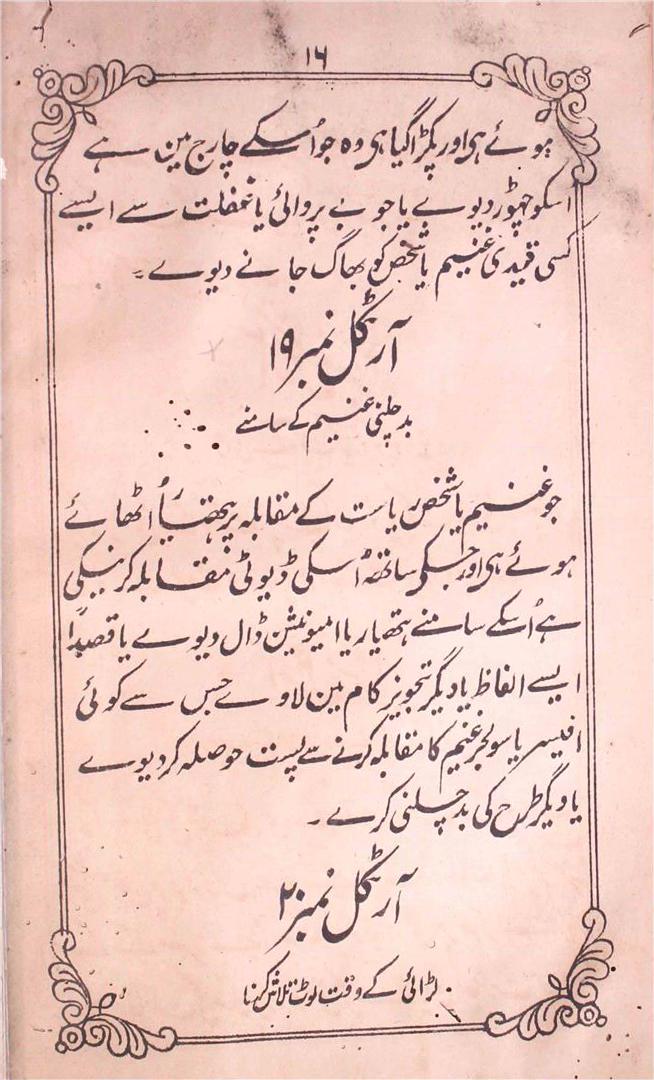 ۱۶
ہوئے ہی اور پکڑا گیا ہی وہ جو اُسکے چارج مین ہے
اُسکو چھوڑ دیوے یا جو بے پروائی یا غفلت سے ایسے
کسی قیدی غنیم یا شخص کو بھاگ جانے دیوے ۔
آرٹکل نمبر ۱۹
بدچلنی غنیم کے سامنے
جو غنیم یا شخص ریاست کے مقابلہ پر ہتھیار اُٹھائے
ہوئے ہی اور جسکی ساتھ اُسکی ڈیوٹی مقابلہ کرنیکی
ہے اُسکے سامنے ہتھیار یا امیونیشن ڈال دیوے یا قصداً
ایسے الفاظ یا دیگر تجویز کام مین لاوے جس سے کوئی
افیسر یا سولجر غنیم کا مقابلہ کرنے سے پست حوصلہ کر دیوے
یا دیگر طرح کی بدچلنی کرے ۔
آرٹکل نمبر ۲۰
لڑائی کے وقت لوٹ تلاش کرنا